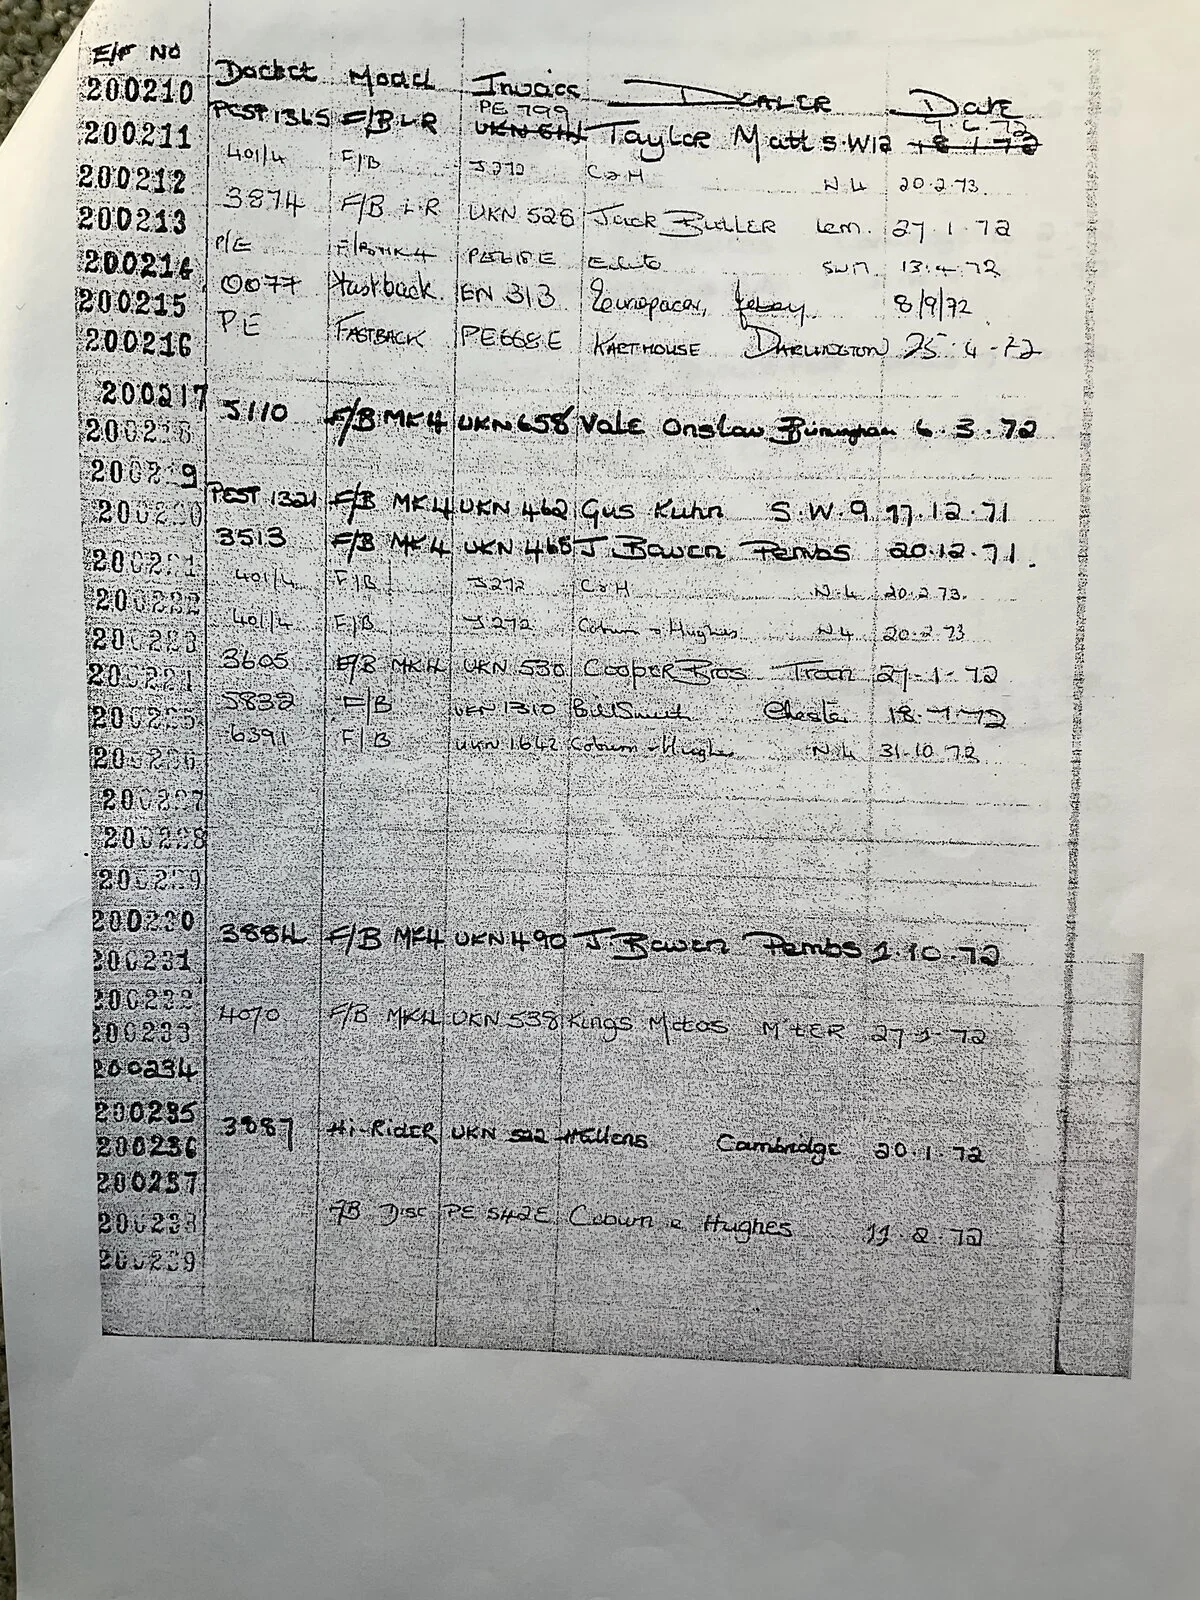 E/F NO Docket Model Invoice DEALER Date
200210
PE 799 7.6.72
200211 PEST 1365 F/B LR UKN 614 Taylor Matt S.W12 18.1.72
200212 401/4 F/B J272 C&H N4 20.2.73.
200213 3874 F/B LR UKN 528 Jack BULLER Lem. 27.1.72
200214 P/E F/B MK4 PE418E SWM 13.4.72
200215 0077 Fastback EN 313 Europacar, Jersey 8/9/72
200216 PE FASTBACK PE668E KARTHOUSE DARLINGTON 25.4.72
200217
200218 5110 F/B MK4 UKN 658 Vale Onslow Birmingham 6.3.72
200219
200220 PEST 1321 F/B MK4 UKN 462 Gus Kuhn S.W.9 17.12.71
200221 3513 F/B MK4 UKN 465 J Bowen Pembs 20.12.71.
200222 401/4 F/B J272 C&H N.4 20.2.73.
200223 401/4 F/B J272 Coburn & Hughes N4 20.2.73
200224 3605 F/B MK4 UKN 530 Cooper Bros Tran 27.1.72
200225 5832 F/B UKN 1310 Bill Smith Chester 18.7.72
200226 6391 F/B UKN 1642 Coburn & Hughes N.4 31.10.72
200227
200228
200229
200230
200231 3884 F/B MK4 UKN 490 J Bowen Pembs 1.10.72
200232
200233 4070 F/B MK4 UKN 538 Kings Motos M'TER 27.1.72
200234
200235
200236 3887 Hi-RIDER UKN 522 Hallens Cambridge 20.1.72
200237
200238 F/B Disc PE 542E Coburn & Hughes 11.2.72
200239